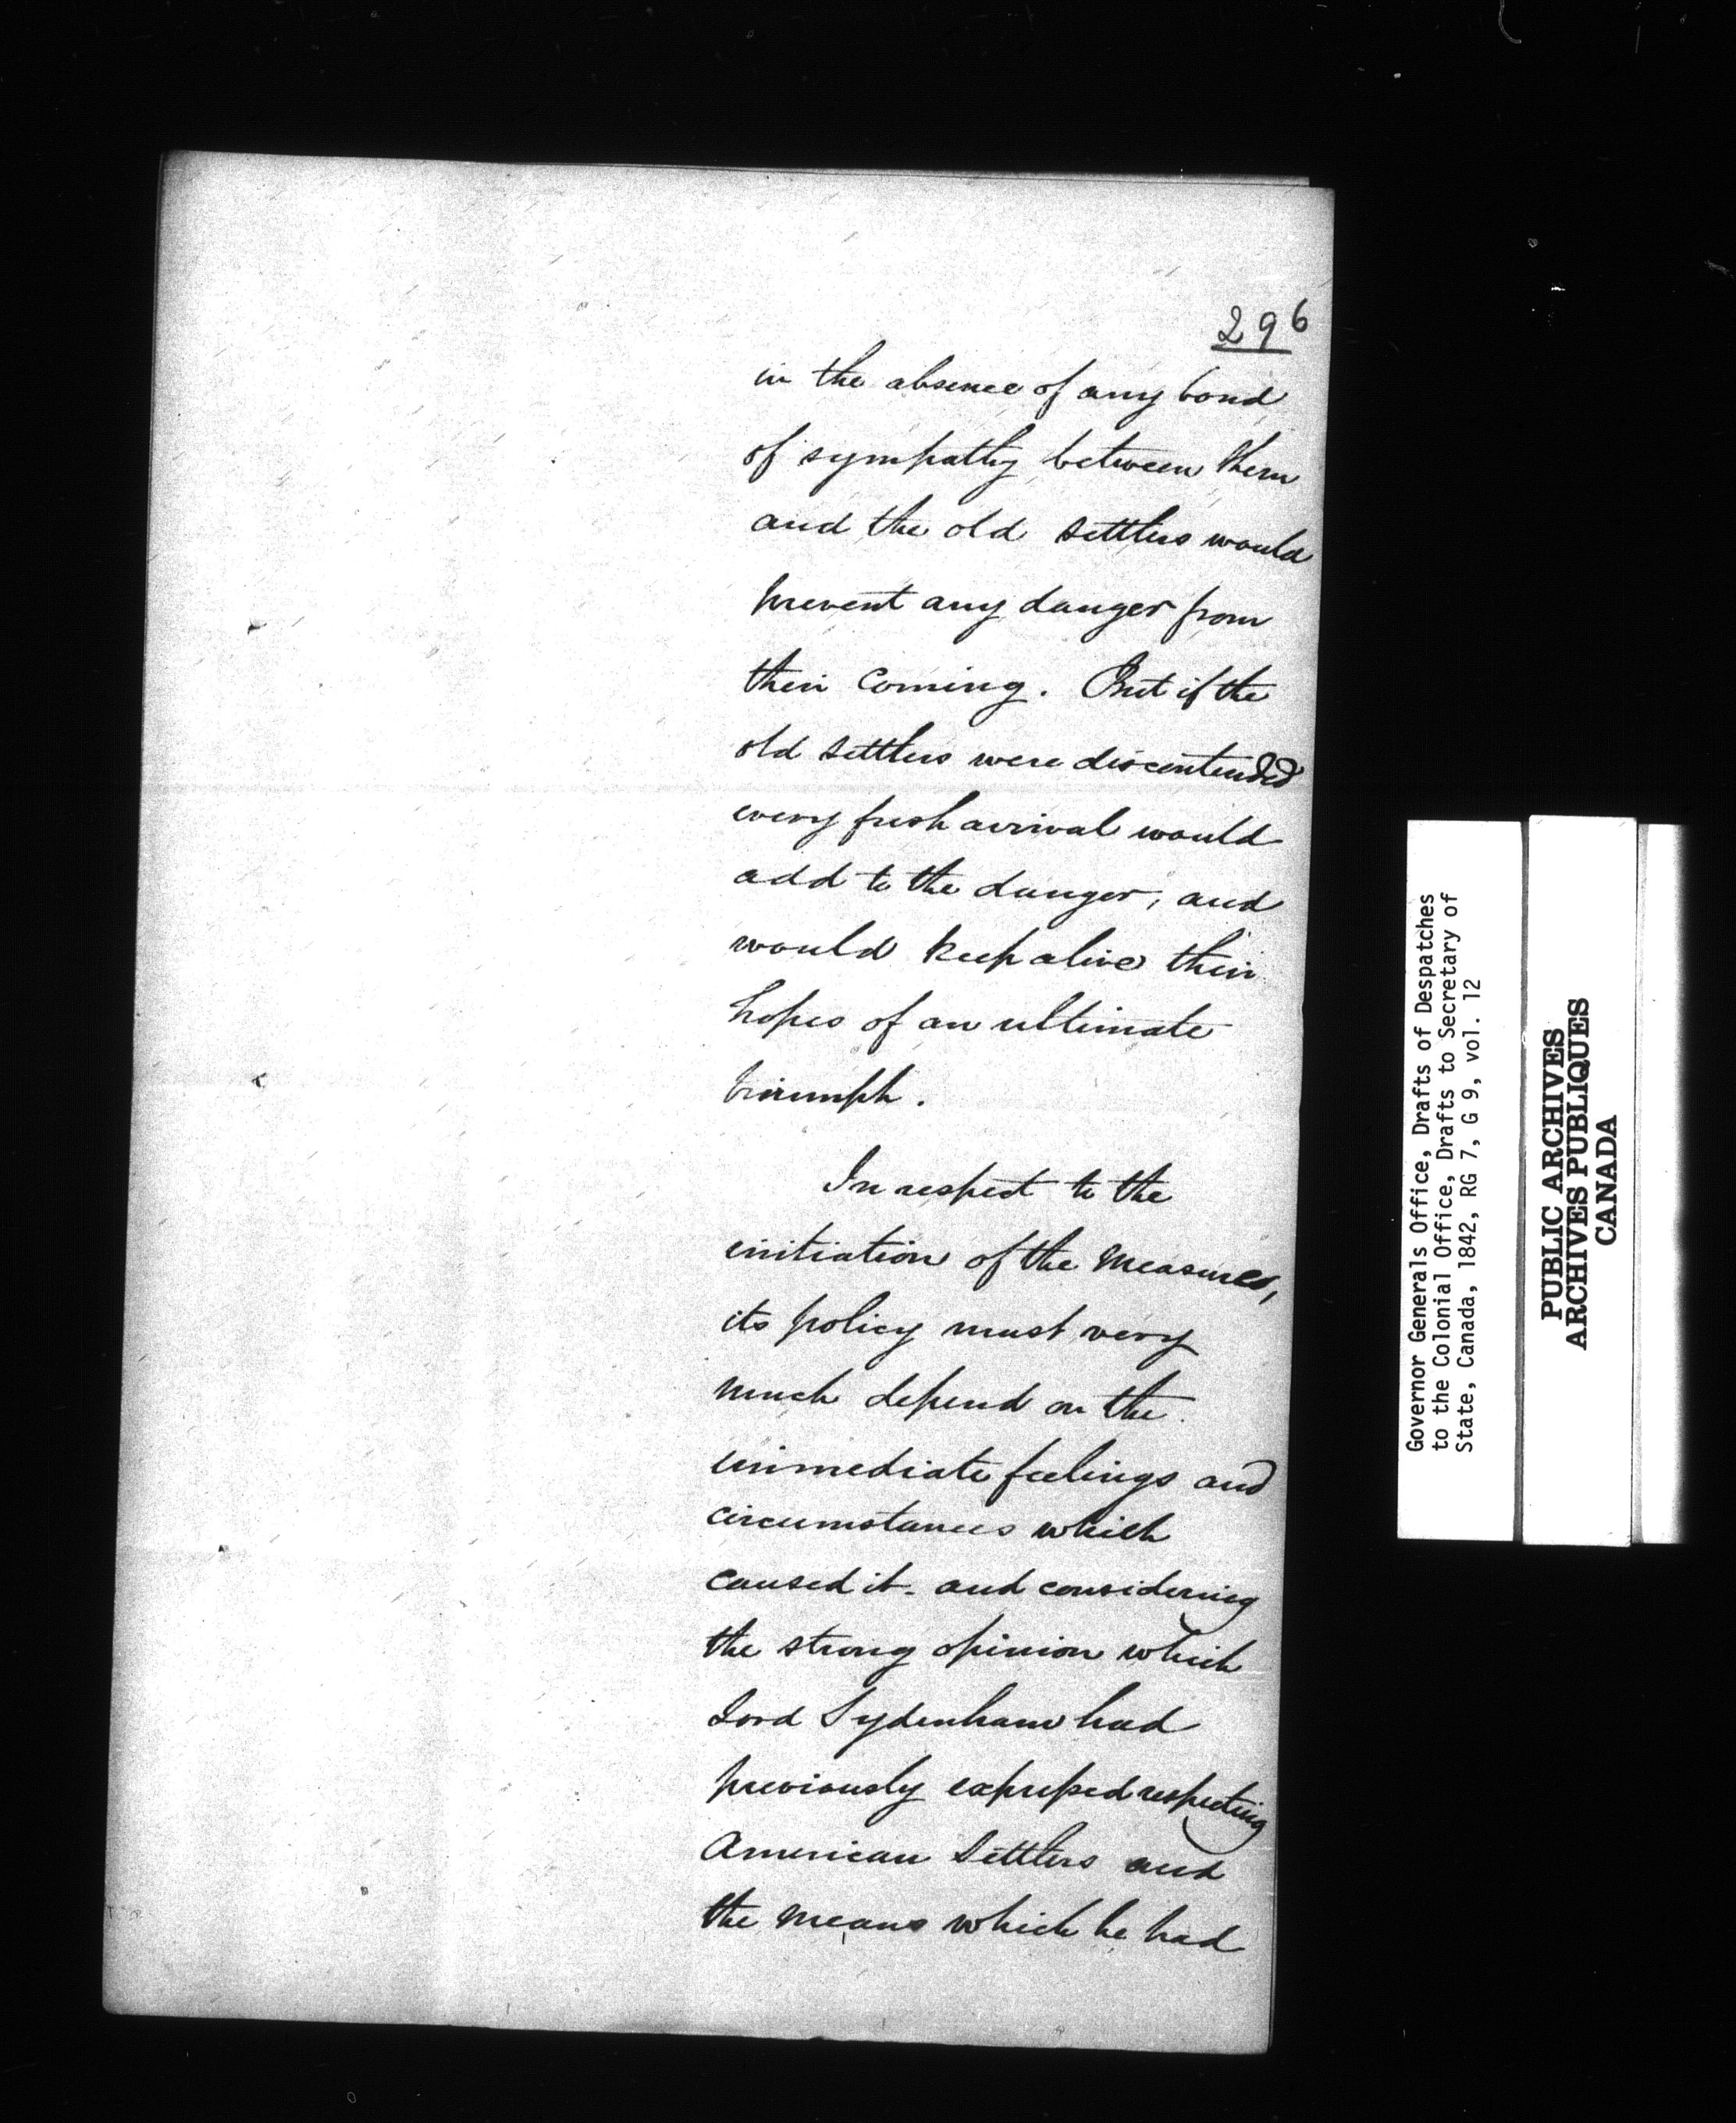 296
in the absence of any bond
of sympathy between them
and the old settlers would
prevent any danger from
their coming. But if the
old settlers were discontended
every fresh arrival would
add to the danger, and
would keep alive their
hopes of an ultimate
triumph.
In respect to the
initiation of the measures,
its policy must very
much depend on the
immediate feelings and
circumstances which
caused it - and considering
the strong opinion which
Lord Sydenham had
previously expressed respecting
American Settlers and
the means which he had
Governor Generals Office, Drafts of Despatches
to the Colonial Office, Drafts to Secretary of
State, Canada, 1842, RG 7, G 9, vol. 12
PUBLIC ARCHIVES
ARCHIVES PUBLIQUES
CANADA